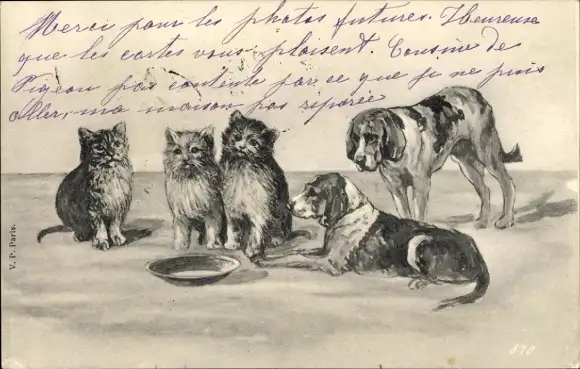 Merci pour les photos futures. Heureuse
que les cartes vous plaisent. Cousine de
Pigeon pas contente parce que je ne puis
aller, ma maison pas réparée
V. P. Paris.
870